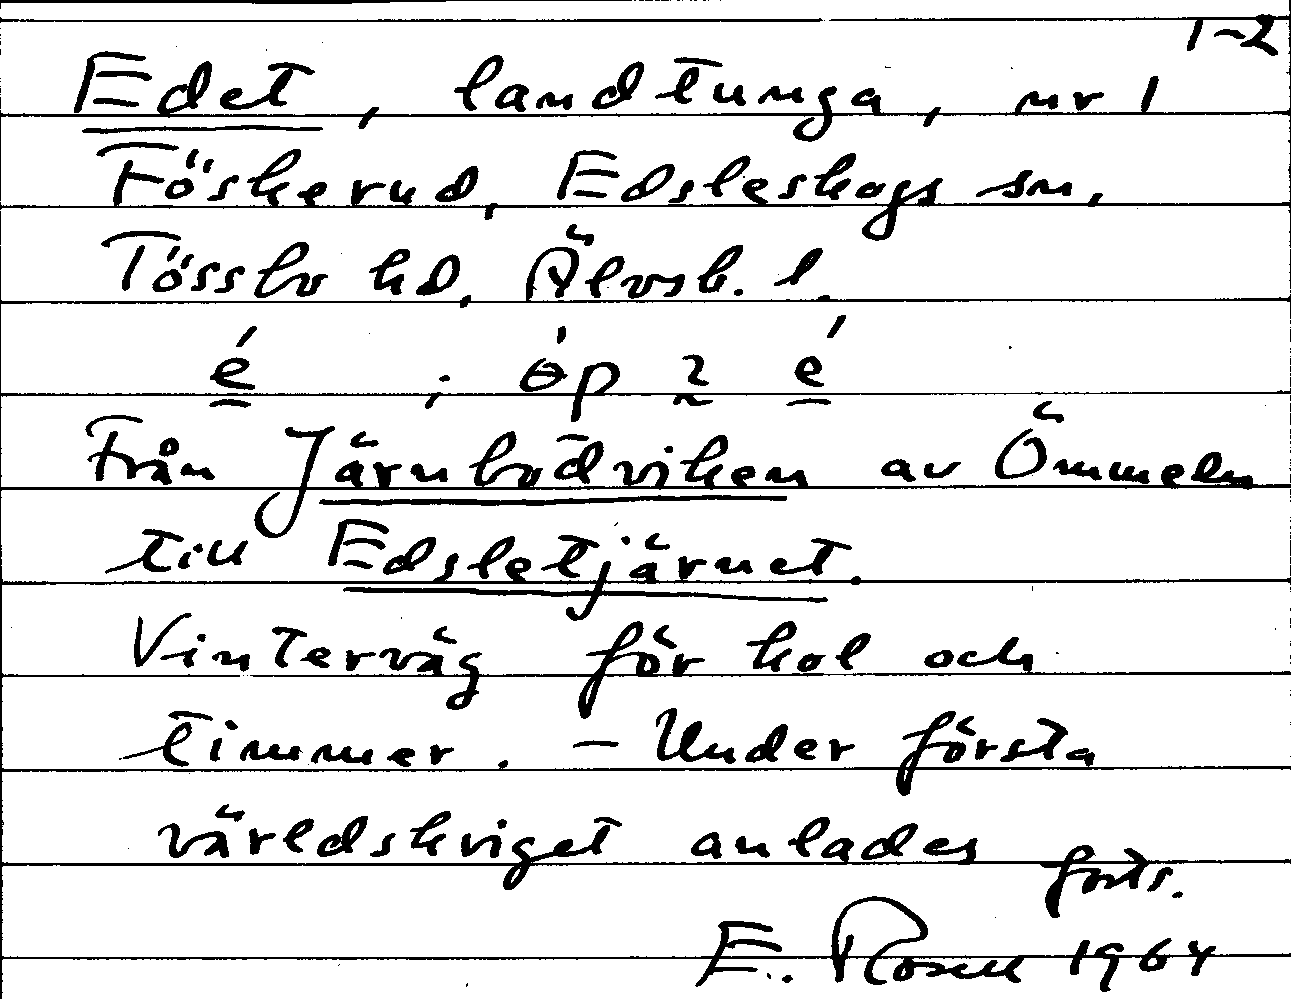 1-2
Edet, landtunga, nr 1
Föskerud, Edsleskogs sn,
Tössbo hd, Älvsb. l.
é ; òp 2 é
Från Järnbodviken av Ömmeln
till Edsletjärnet.
Vinterväg för kol och
timmer. – Under första
världskriget anlades
forts.
E. Rosell 1964